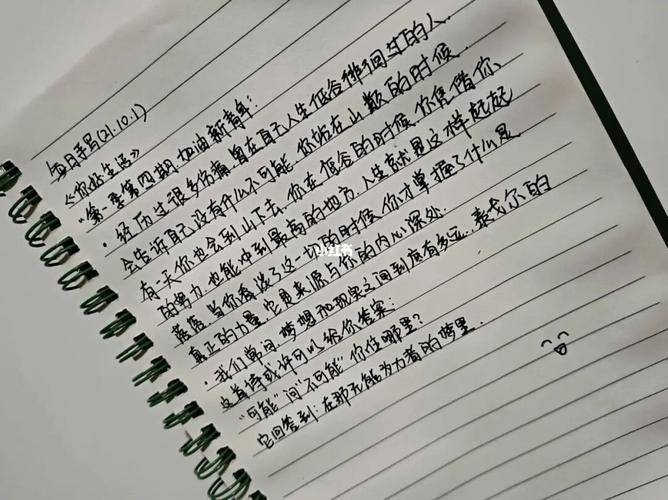 每日手写(21.10.1)
《你好生活》
"第一季第四期.加油新青年:
·经历过很多伤痛,曾在自己人生低谷徘徊过的人.
会告诉自己没有什么不可能.你站在山巅的时候.
有一天你也会到山下去.你在低谷的时候.你凭借你
的努力.也能冲到最高的地方.人生就是这样起起
落落.当你看淡了这一切的时候.你才掌握了什么是
真正的力量.它是来源与你的内心深处.
·我们常问.梦想和现实之间到底有多远.泰戈尔的
这首诗或许可以给你答案:
"可能"问"不可能"你住哪里?
它回答到:在那无能为力者的梦里.
小红书